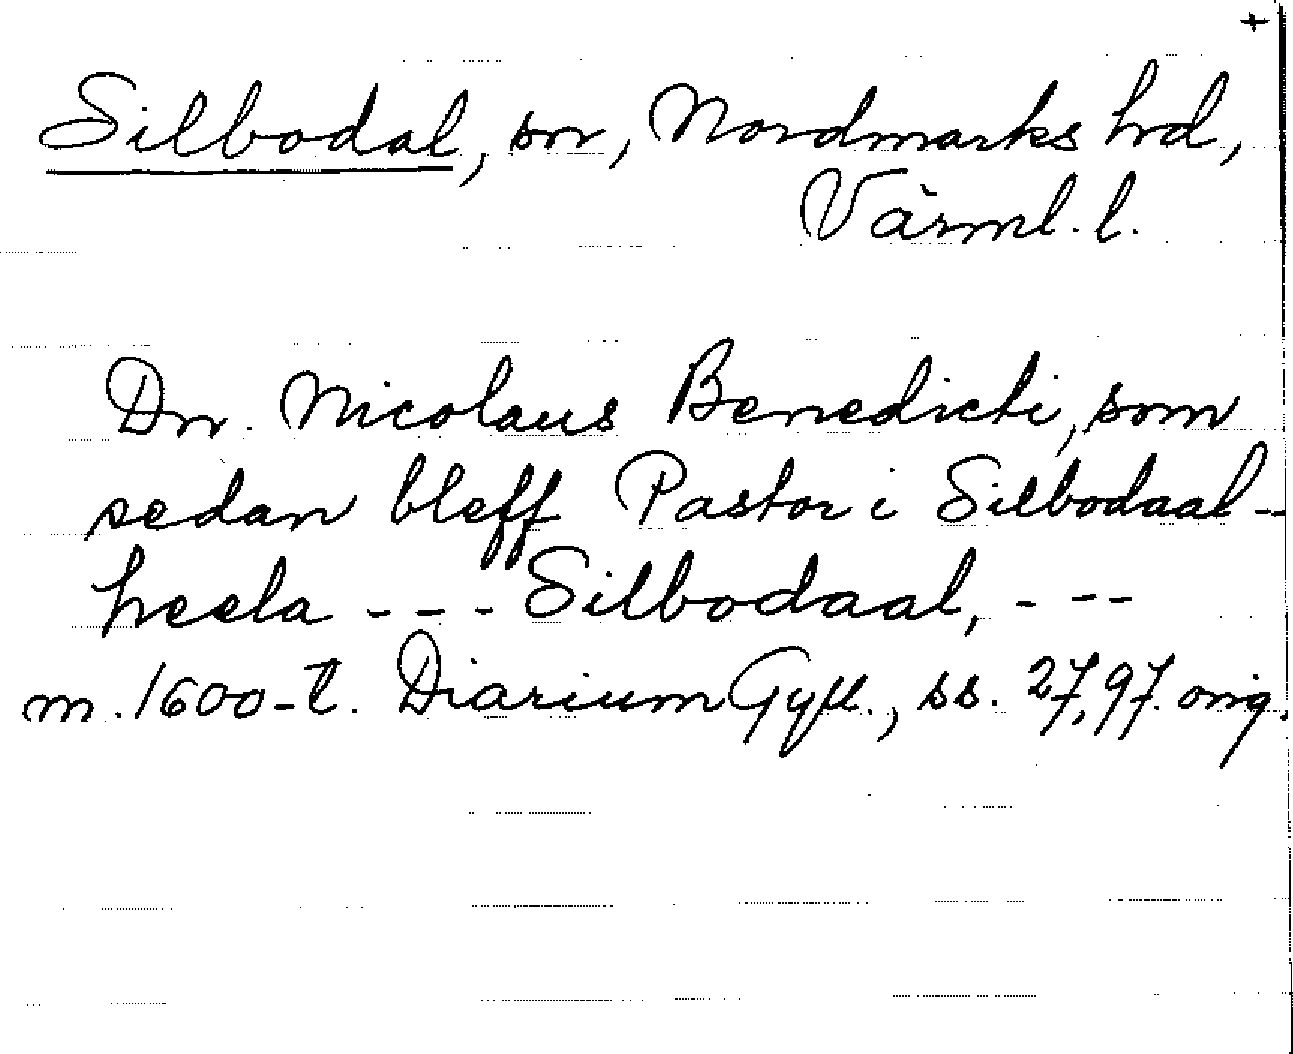 +
Silbodal, sn, Nordmarks hd,
Värml. l.
Dn. Nicolaus Benedicti, som
sedan bleff Pastor i Silbodaal --
heela - - - Silbodaal, - - -
m. 1600-t. Diarium Gyll., ss. 27, 97. orig.